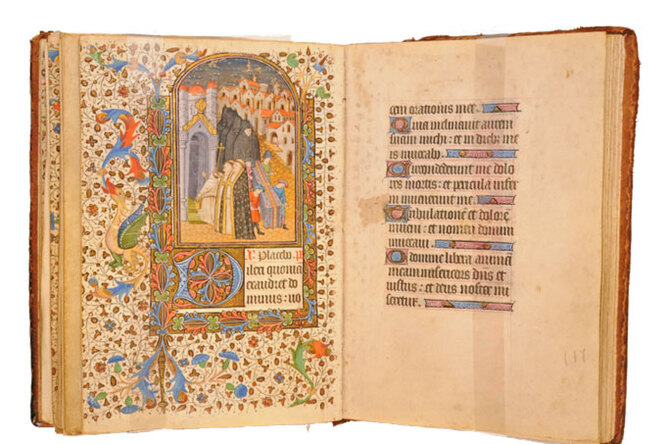 Placebo. P
Dilexi quonia
exaudiet do
minus: vo
cem orationis mee.
Quia inclinauit aurem
suam michi: et in dieb; me
is inuocabo.
Circondederunt me dolo
res mortis: et pericula infer
ni inuenerunt me.
Tribulationē et dolorē
inueni: et nomen domini
inuocaui.
O domine libera animā
meam misericors dns et
iustus: et deus noster mi
seretur.